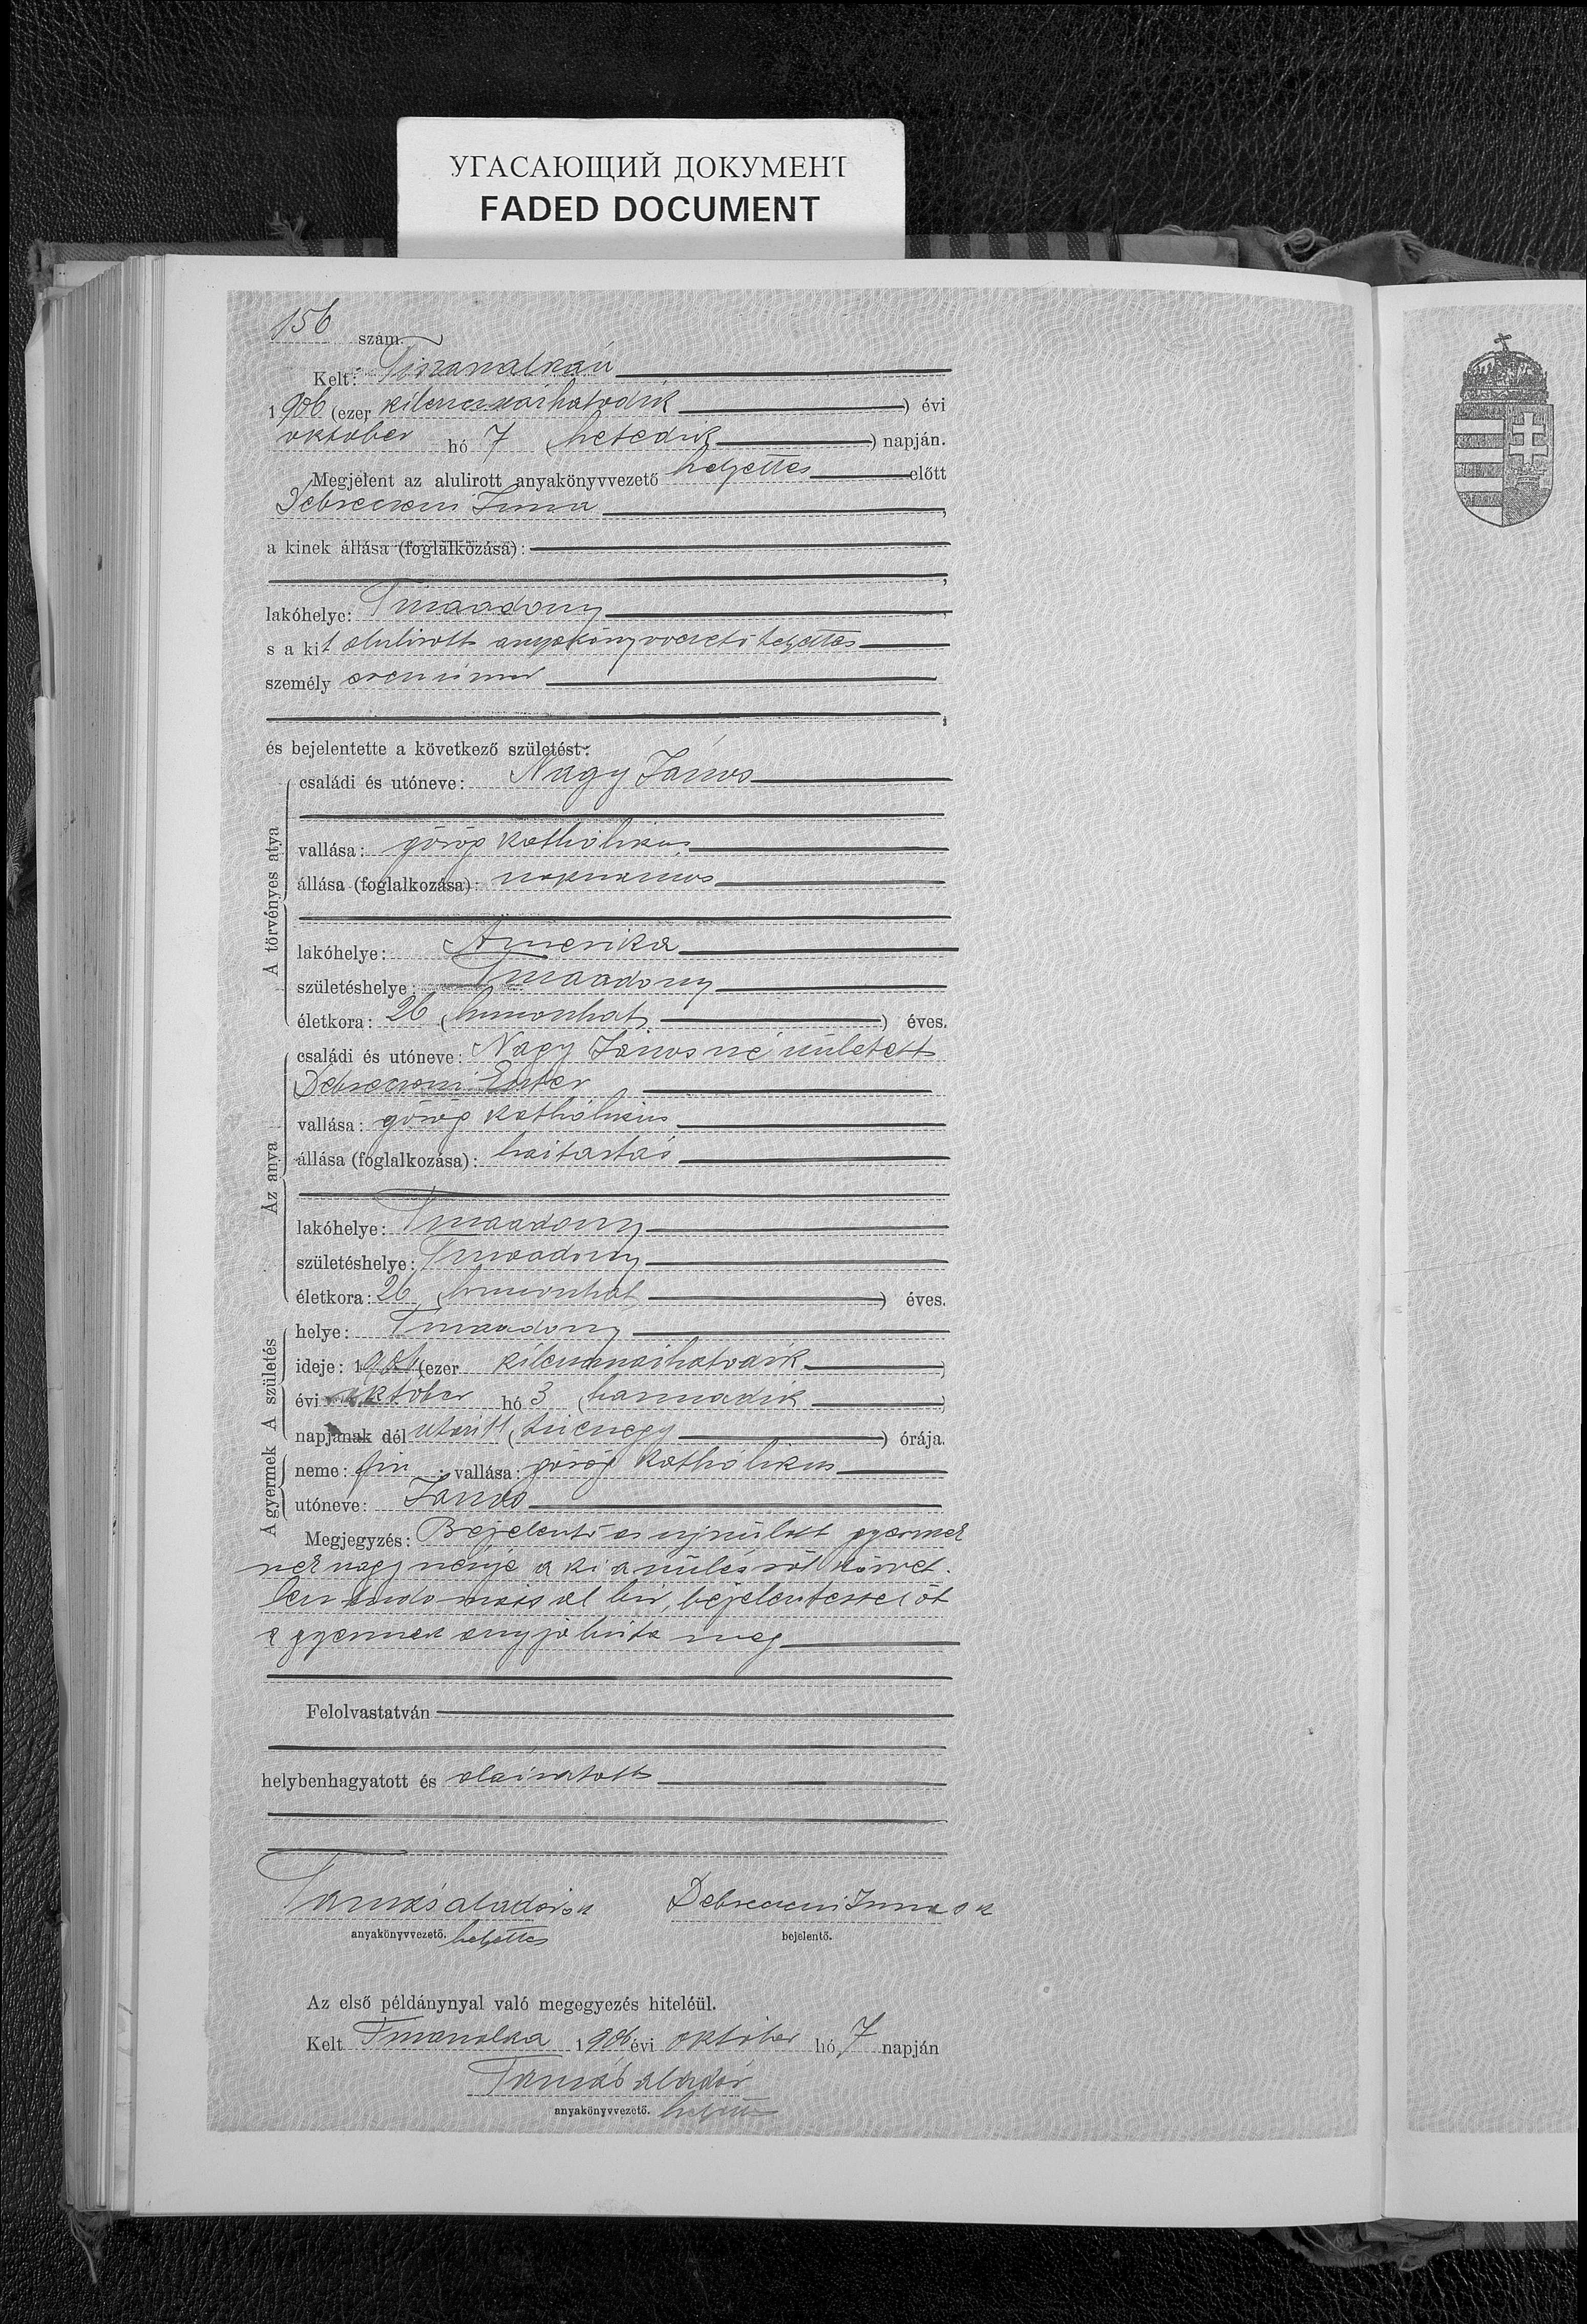 УГАСАЮЩИЙ ДОКУМЕНТ
FADED DOCUMENT
156 szám.
Kelt:
1906 (ezer kilenczszázhatodik) évi
október hó 7 (hetedik) napján.
Megjelent az alulirott anyakönyvvezető helyettes előtt
Debreczeni Zsuzsa,
a kinek állása (foglalkozása):
lakóhelye: Tiszaadony,
s a kit alulirott anyakönyvvezető helyettes
személy
és bejelentette a következő születést:
A törvényes atya
családi és utóneve: Nagy János
vallása: görög katholikus
állása (foglalkozása): napszámos
lakóhelye: Amerika
születéshelye: Tiszaadony
életkora: 26 (huszonhat) éves.
Az anya
családi és utóneve: Nagy Jánosné született
Debreczeni Eszter
vallása: görög katholikus
állása (foglalkozása): háztartás
lakóhelye: Tiszaadony
születéshelye: Tiszaadony
életkora: 26 (huszonhat) éves.
A gyermek A születés
helye: Tiszaadony
ideje: 1906 (ezer kilenczszázhatodik)
évi október hó 3 (harmadik)
napjának dél utáni 11 (tizenegy) órája.
neme: fiu; vallása: görög katholikus
utóneve: János
Megjegyzés: Bejelentő az ujszülött gyermek
nek nagy nénje a ki a szülésről közvet.
len tudomással bir, bejelentéssel őt
a gyermek anyja bizta meg
Felolvastatván
helybenhagyatott és aláiratott
Tamás Aladár sk Debreczeni Zsuzsa sk
anyakönyvvezető. helyettes bejelentő.
Az első példánynyal való megegyezés hiteléül.
Kelt 1906 évi október hó 7 napján
Tamás Aladár
anyakönyvvezető. helyettes